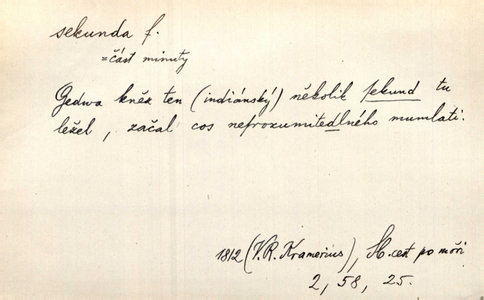 sekunda f.
=část minuty
Gedwa kněz ten (indiánský) několik sekund tu
ležel, začal cos nesrozumitedlného mumlati.
1812 (V.R. Kramerius), H. cest po moři
2, 58, 25.